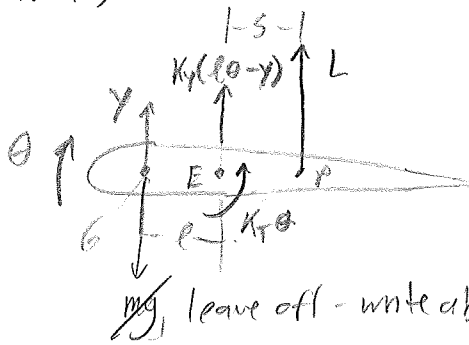 |- S -|
Ky(lθ-y)
L
y
θ
E
P
G
l
K_T θ
mg, leave off - write a